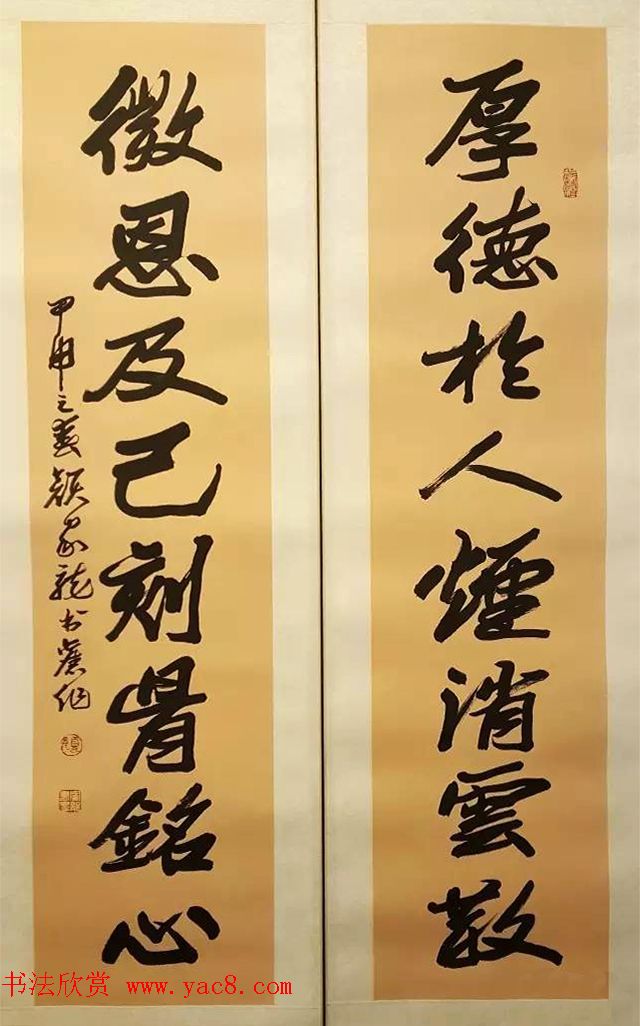 厚德於人煙消雲散
微恩及己刻骨銘心
甲申之羙顏家龍書舊作
书法欣赏 www.yac8.com